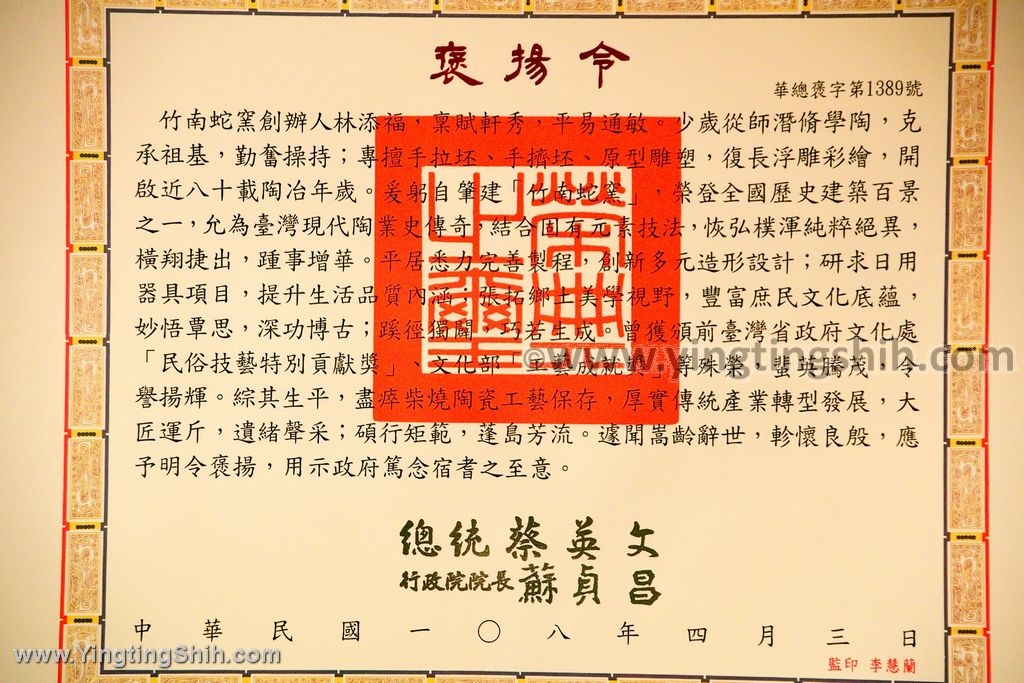 褒揚令
華總褒字第1389號
竹南蛇窯創辦人林添福，稟賦軒秀，平易通敏。少歲從師潛脩學陶，克
承祖基，勤奮操持；專擅手拉坯、手擠坯、原型雕塑，復長浮雕彩繪，開
啟近八十載陶冶年歲。爰躬自肇建「竹南蛇窯」，榮登全國歷史建築百景
之一，允為臺灣現代陶業史傳奇，結合固有元素技法，恢弘樸渾純粹絕異，
橫翔捷出，踵事增華。平居悉力完善製程，創新多元造形設計；研求日用
器具項目，提升生活品質內涵；張拓鄉土美學視野，豐富庶民文化底蘊，
妙悟覃思，深功博古；蹊徑獨闢，巧若生成。曾獲頒前臺灣省政府文化處
「民俗技藝特別貢獻獎」、文化部「工藝成就獎」等殊榮，蜚英騰茂，令
譽揚輝。綜其生平，盡瘁柴燒陶瓷工藝保存，厚實傳統產業轉型發展，大
匠運斤，遺緒聲采；碩行矩範，蓬島芳流。遽聞嵩齡辭世，軫懷良殷，應
予明令褒揚，用示政府篤念宿耆之至意。
榮典之璽
©www.yingtingshih.com
總統 蔡英文
行政院院長 蘇貞昌
中華民國一〇八年四月三日
監印 李慧蘭
www.YingtingShih.com